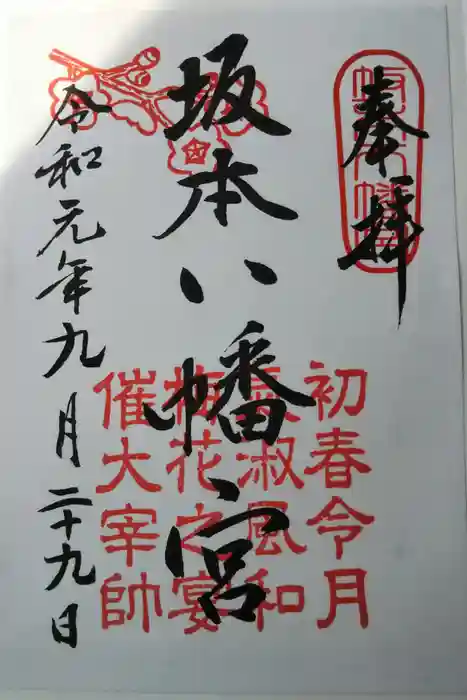 奉拝
坂本八幡宮
令和元年九月二十九日
初春令月
氣淑風和
梅花之宴
催大宰帥